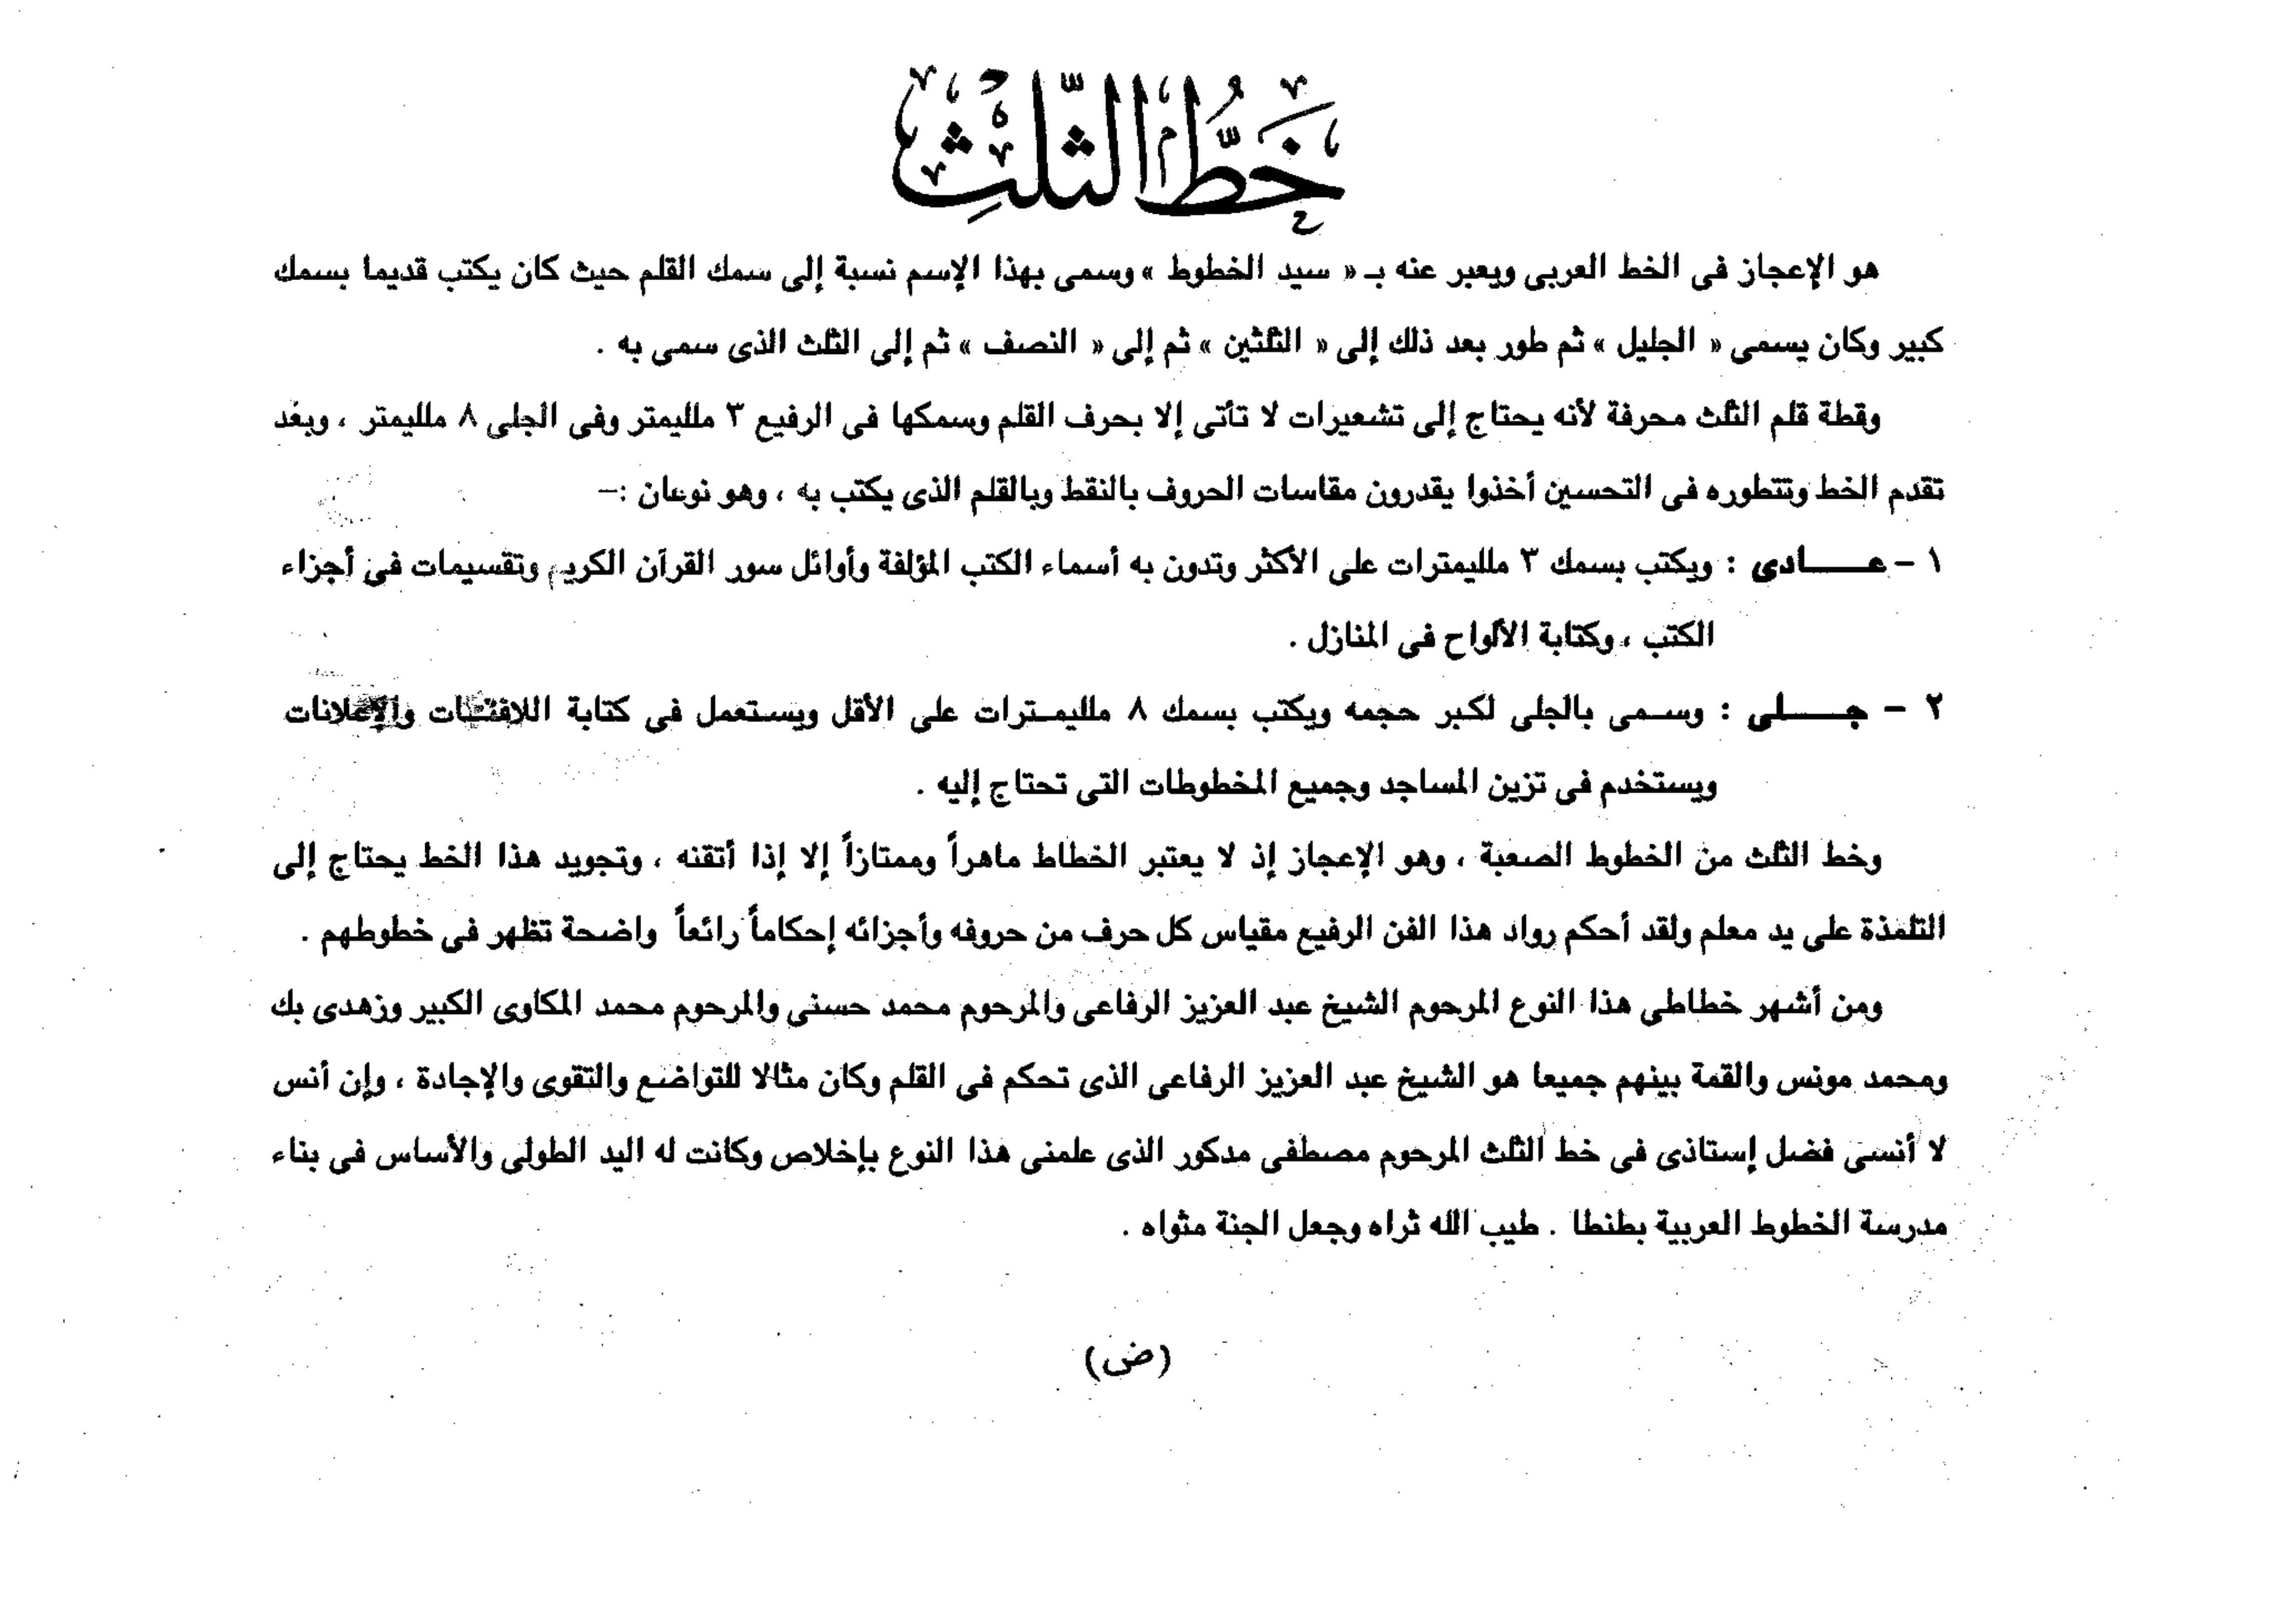 خَطُّ الثُّلُثِ
هو الإعجاز فى الخط العربى ويعبر عنه بـ « سيد الخطوط » وسمى بهذا الإسم نسبة إلى سمك القلم حيث كان يكتب قديما بسمك
كبير وكان يسمى « الجليل » ثم طور بعد ذلك إلى « الثلثين » ثم إلى « النصف » ثم إلى الثلث الذى سمى به .
وقطة قلم الثلث محرفة لأنه يحتاج إلى تشعيرات لا تأتى إلا بحرف القلم وسمكها فى الرفيع ٣ ملليمتر وفى الجلى ٨ ملليمتر ، وبعْد
تقدم الخط وتتطوره فى التحسين أخذوا يقدرون مقاسات الحروف بالنقط وبالقلم الذى يكتب به ، وهو نوعان :–
١ – عـــادى : ويكتب بسمك ٣ ملليمترات على الأكثر وتدون به أسماء الكتب المؤلفة وأوائل سور القرآن الكريم وتقسيمات فى أجزاء
الكتب ، وكتابة الألواح فى المنازل .
٢ – جـــلى : وسمى بالجلى لكبر حجمه ويكتب بسمك ٨ ملليمـترات على الأقل ويستعمل فى كتابة اللافتات والإعلانات
ويستخدم فى تزين المساجد وجميع المخطوطات التى تحتاج إليه .
وخط الثلث من الخطوط الصعبة ، وهو الإعجاز إذ لا يعتبر الخطاط ماهراً وممتازاً إلا إذا أتقنه ، وتجويد هذا الخط يحتاج إلى
التلمذة على يد معلم ولقد أحكم رواد هذا الفن الرفيع مقياس كل حرف من حروفه وأجزائه إحكاماً رائعاً واضحة تظهر فى خطوطهم .
ومن أشهر خطاطى هذا النوع المرحوم الشيخ عبد العزيز الرفاعى والمرحوم محمد حسنى والمرحوم محمد المكاوى الكبير وزهدى بك
ومحمد مونس والقمة بينهم جميعا هو الشيخ عبد العزيز الرفاعى الذى تحكم فى القلم وكان مثالا للتواضع والتقوى والإجادة ، وإن أنس
لا أنسى فضل إستاذى فى خط الثلث المرحوم مصطفى مدكور الذى علمنى هذا النوع بإخلاص وكانت له اليد الطولى والأساس فى بناء
مدرسة الخطوط العربية بطنطا . طيب الله ثراه وجعل الجنة مثواه .
(ض)